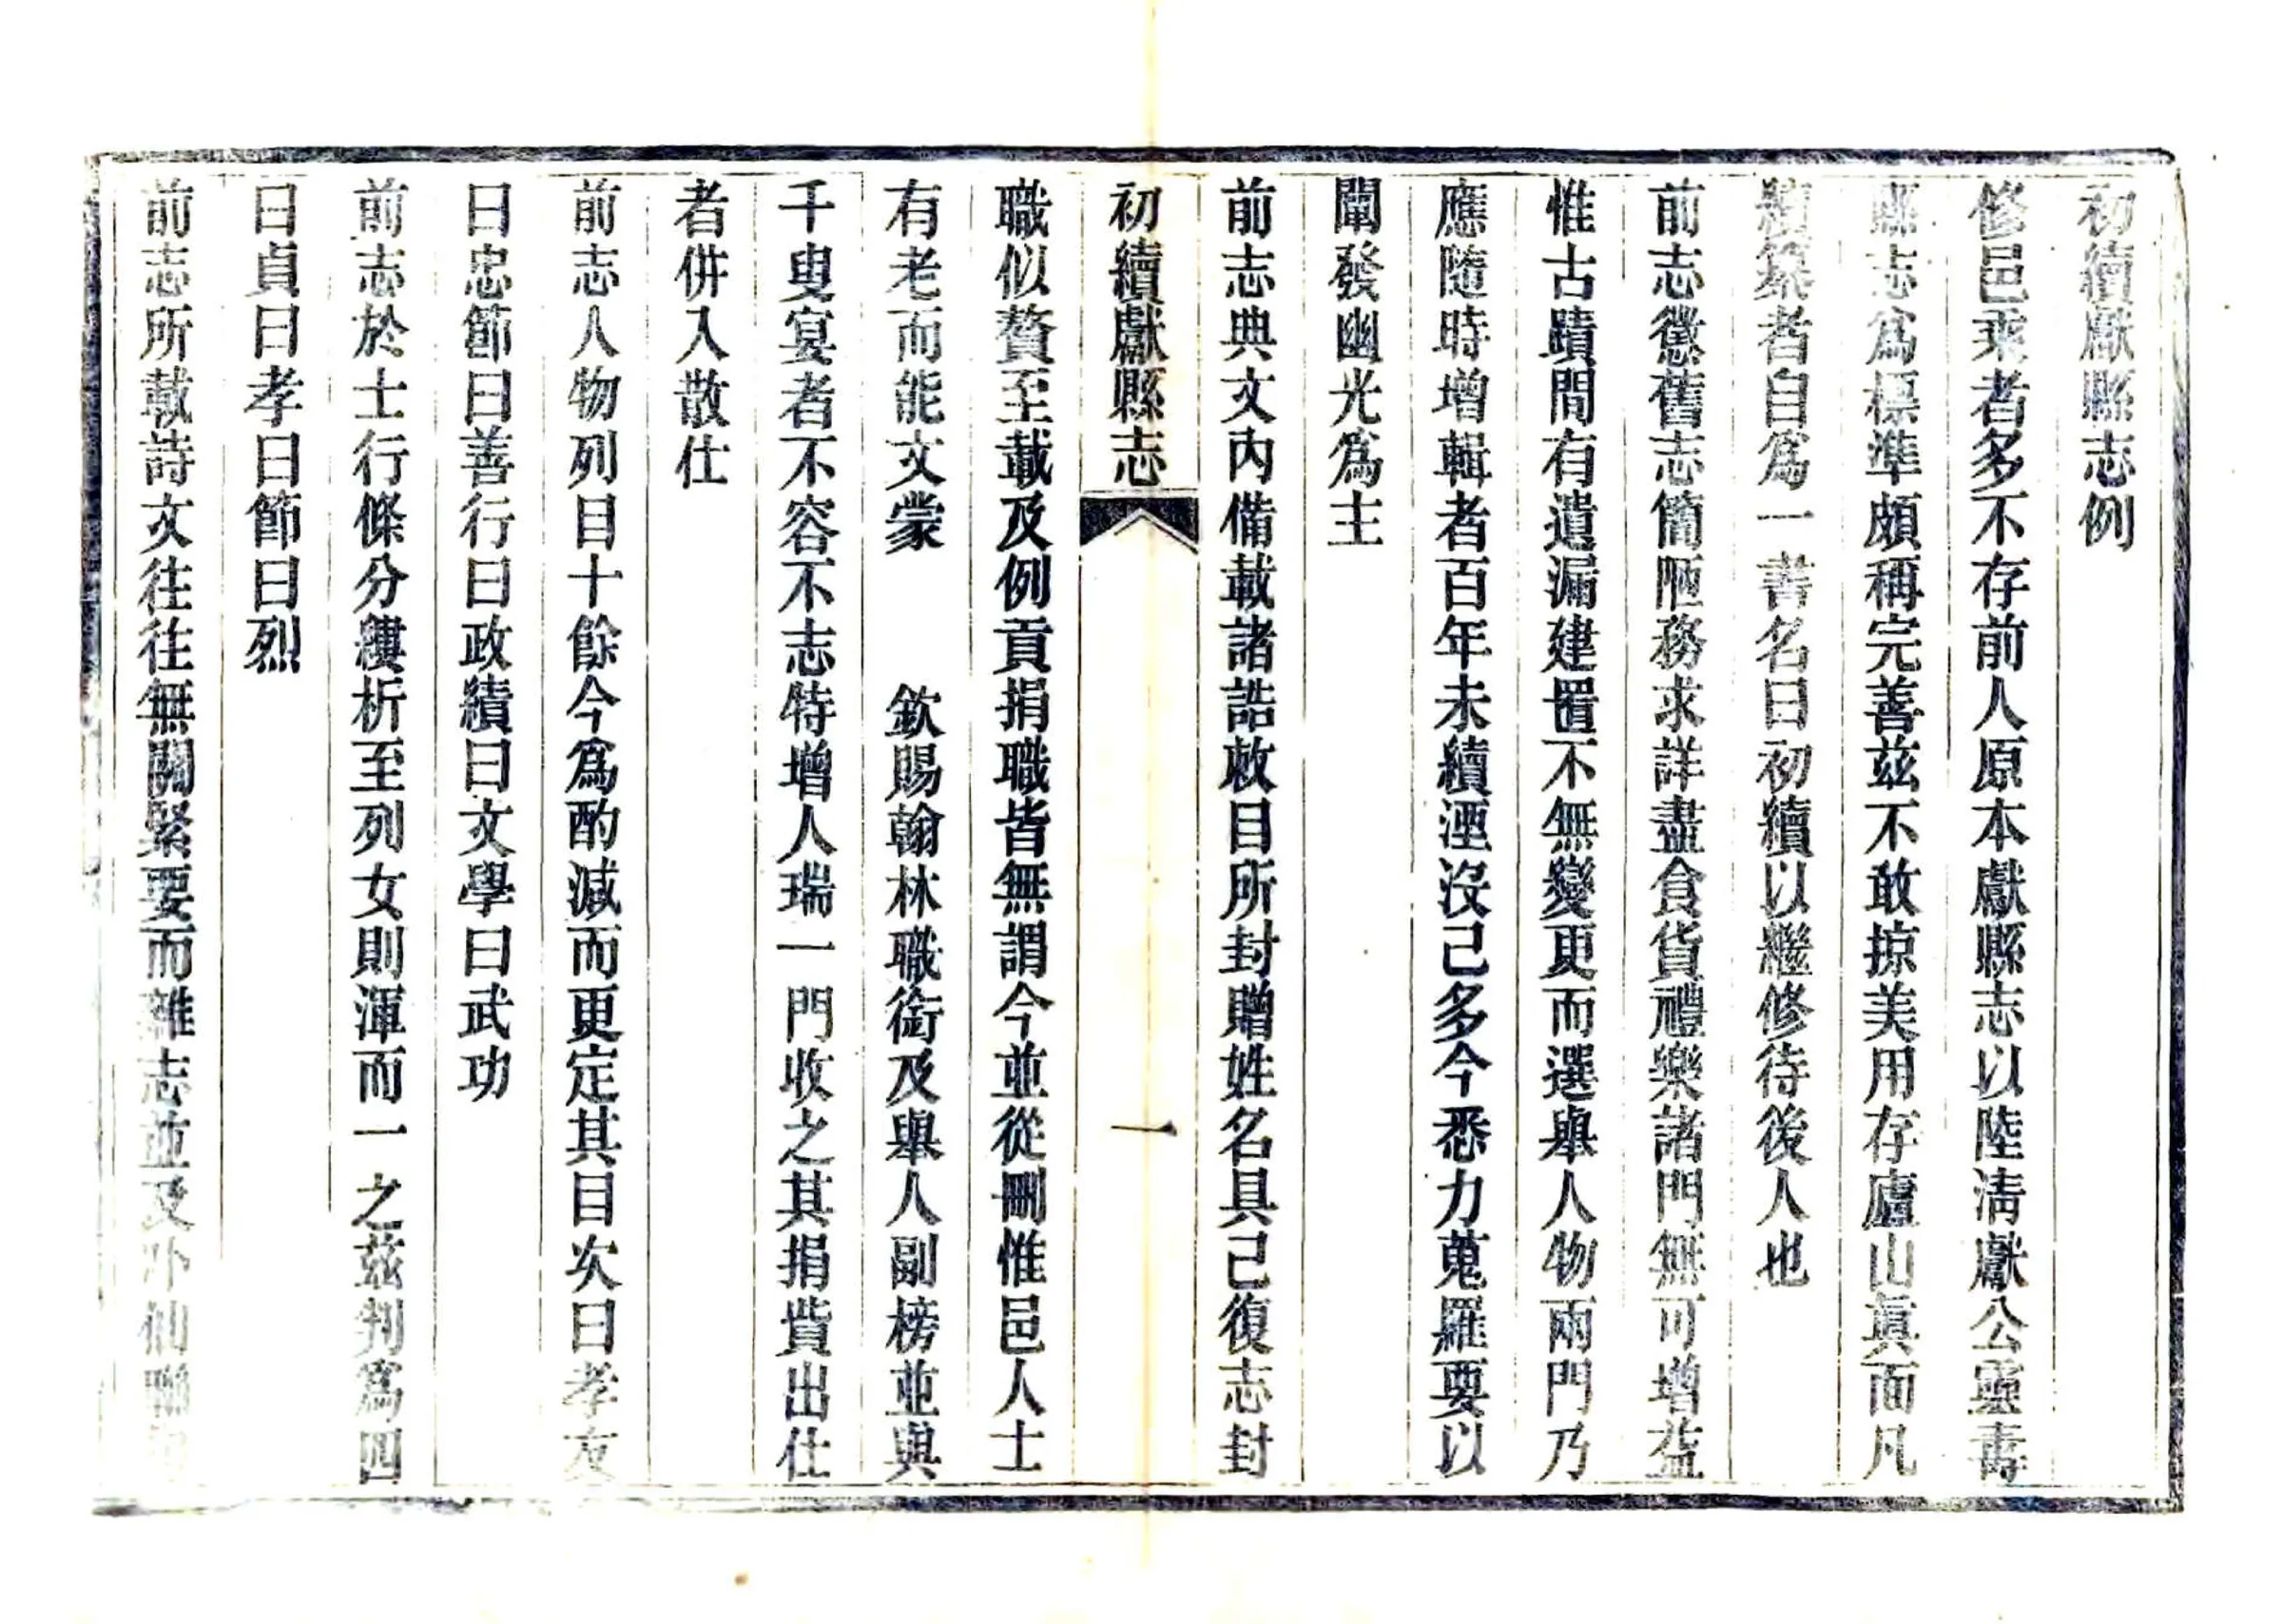 初續獻縣志例
修邑乘者多不存前人原本獻縣志以陸淸獻公靈壽
縣志爲標準頗稱完善茲不敢掠美用存廬山眞面凡
續纂者自爲一書名曰初續以繼修待後人也
前志懲舊志簡陋務求詳盡食貨禮樂諸門無可增益
惟古蹟間有遺漏建置不無變更而選舉人物兩門乃
應隨時增輯者百年未續湮沒已多今悉力蒐羅要以
闡發幽光爲主
前志典文內備載諸誥敕目所封贈姓名具已復志封
初續獻縣志
一
職似贅至載及例貢捐職皆無謂今並從刪惟邑人士
有老而能文蒙 欽賜翰林職銜及舉人副榜並與
千叟宴者不容不志特增人瑞一門收之其捐貲出仕
者併入散仕
前志人物列目十餘今爲酌減而更定其目次曰孝友
曰忠節曰善行曰政績曰文學曰武功
前志於士行條分縷析至列女則渾而一之茲判爲四
曰貞曰孝曰節曰烈
前志所載詩文往往無關緊要而雜志並及乩仙聯句